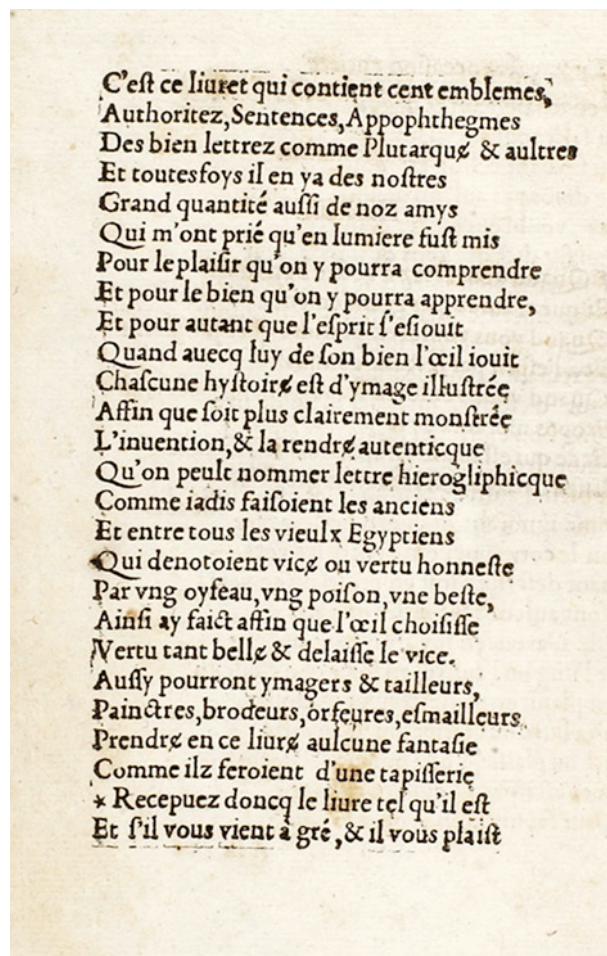 C'eſt ce liuret qui contient cent emblemes,
Authoritez, Sentences, Appophthegmes
Des bien lettrez comme Plutarquɇ & aultres
Et toutesfoys il en ya des noſtres
Grand quantité auſſi de noz amys
Qui m'ont prié qu'en lumiere fuſt mis
Pour le plaiſir qu'on y pourra comprendre
Et pour le bien qu'on y pourra apprendre,
Et pour autant que l'eſprit ſ'eſiouit
Quand auecq luy de ſon bien l'œil iouit
Chaſcune hyſtoirɇ eſt d'ymage illuſtrée
Affin que ſoit plus clairement monſtrée
L'inuention, & la rendrɇ autenticque
Qu'on peult nommer lettre hierogliphicque
Comme iadis faiſoient les anciens
Et entre tous les vieulx Egyptiens
Qui denotoient vicɇ ou vertu honneſte
Par vng oyſeau, vng poiſon, vne beſte,
Ainſi ay faict affin que l'œil choiſiſſe
Vertu tant bellɇ & delaiſſe le vice.
Auſſy pourront ymagers & tailleurs,
Painctres, brodeurs, orfeures, eſmailleurs
Prendrɇ en ce liurɇ aulcune fantaſie
Comme ilz feroient d'une tapiſſerie
* Recepuez doncq le liure tel qu'il eſt
Et ſ'il vous vient à gré, & il vous plaiſt